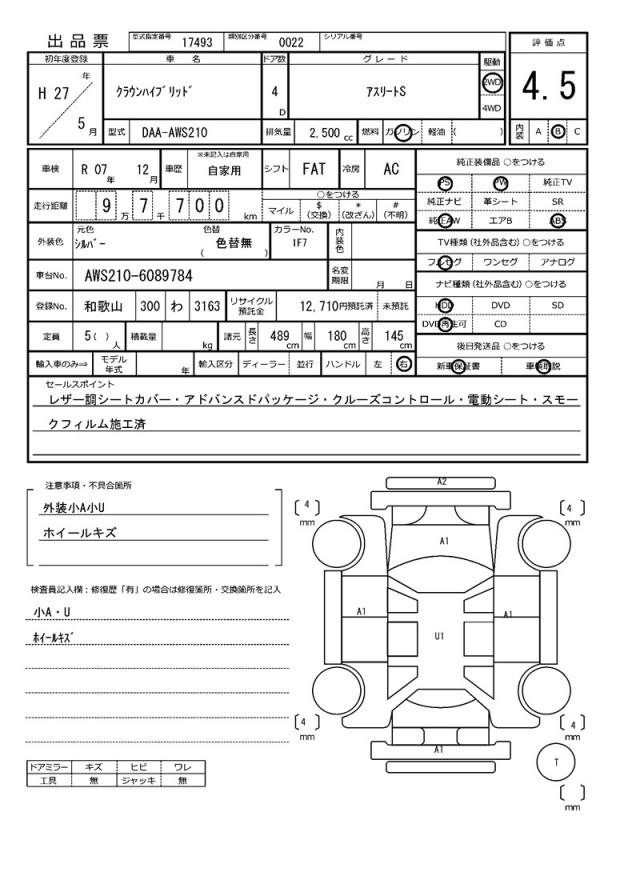 出品票
型式指定番号 17493 類別区分番号 0022 シリアル番号
初年度登録 車名 ドア数 グレード 駆動
H 27 年 5 月
クラウンハイブリッド゛
4 D
アスリートS
2WD
4WD
型式 DAA-AWS210 排気量 2,500 cc 燃料 ガソリン 軽油 ( )
評価点
4.5
内装 A B C
車検 R 07 年 12 月 車歴 ※未記入は自家用 自家用 シフト FAT 冷房 AC
走行距離 9 万 7 千 7 0 0 km
○をつける
マイル $ (交換) * (改ざん) # (不明)
外装色 元色 シルバー 色替 色替無 ( ) カラーNo. 1F7 内装色
車台No. AWS210-6089784 名変期限 月 日
登録No. 和歌山 300 わ 3163 リサイクル預託金 12,710円預託済 未預託
定員 5( ) 人 積載量 kg 諸元 長さ 489 cm 幅 180 cm 高さ 145 cm
輸入車のみ⇒ モデル年式 年 輸入区分 ディーラー 並行 ハンドル 左 右
純正装備品 ○をつける
PS PW 純正TV
純正ナビ 革シート SR
純正AW エアB ABS
TV種類(社外品含む)○をつける
フルセグ ワンセグ アナログ
ナビ種類(社外品含む)○をつける
HDD DVD SD
DVD再生可 CD
後日発送品 ○をつける
新車保証書 車輌取説
セールスポイント
レザー調シートカバー・アドバンスドパッケージ・クルーズコントロール・電動シート・スモー
クフィルム施工済
注意事項・不具合箇所
外装小A小U
ホイールキズ
検査員記入欄:修復歴「有」の場合は修復箇所・交換箇所を記入
小A・U
ホイールキズ
ドアミラー キズ ヒビ ワレ
工具 無 ジャッキ 無
A2
[4] mm
[4] mm
A1
A1
A1
U1
[4] mm
[4] mm
A1
T
[ ] mm